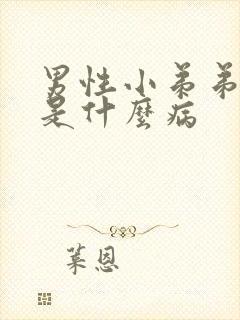 男性小弟弟
是什麼病
葉恩